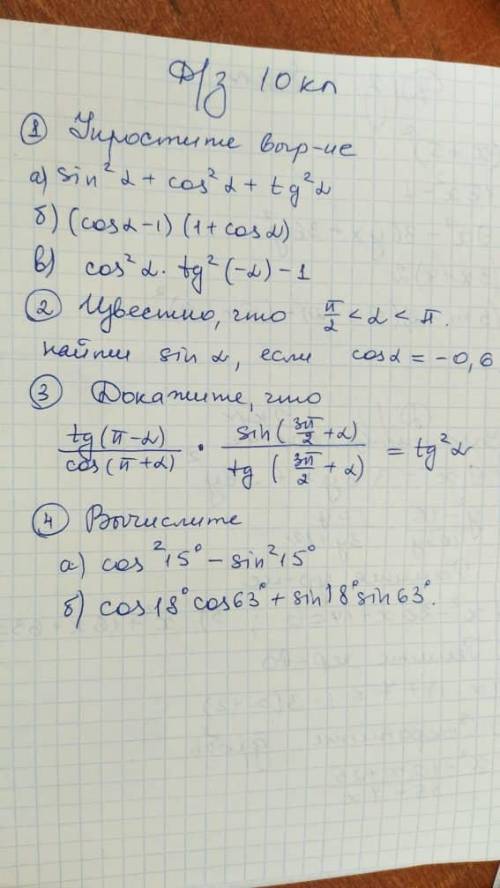 Д/з 10 кл
① Упростите выр-ие
а) sin²α + cos²α + tg²α
б) (cosα-1)(1+cosα)
в) cos²α · tg²(-α) - 1
② Известно, что π/2 < α < π.
найти sin α, если cosα = -0,6
③ Докажите, что
tg(π-α)/cos(π+α) · sin(3π/2+α)/tg(3π/2+α) = tg²α.
④ Вычислите
а) cos²15° - sin²15°
б) cos18°cos63° + sin18°sin63°.